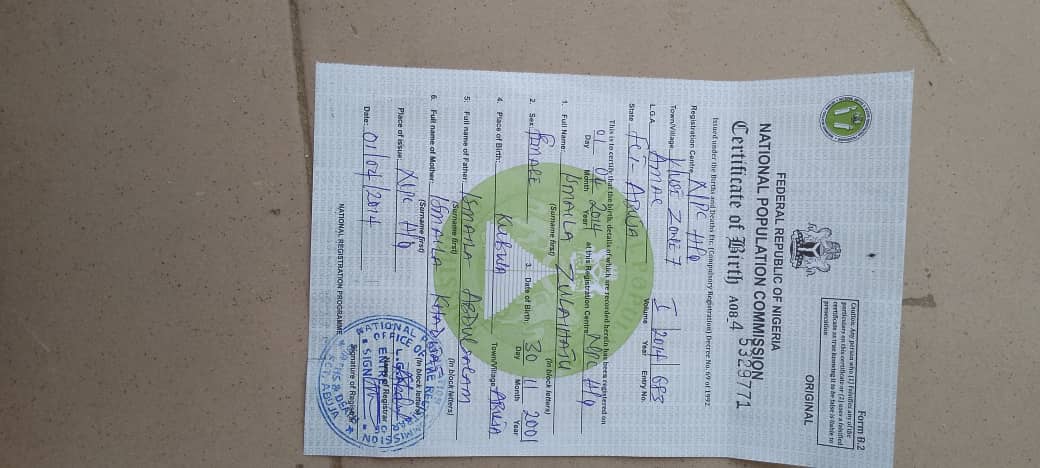 Form B.2
Caution: Any person who (1) Falsifies any of the
particulars on this certificate or (2) uses a falsified
certificate as true knowing it to be false is liable to
prosecution
ORIGINAL
FEDERAL REPUBLIC OF NIGERIA
NATIONAL POPULATION COMMISSION
Certificate of Birth A08 4 5329771
Issued under the Births and Deaths Etc. (Compulsory Registration) Decree No. 69 of 1992
Registration Centre NPC HQ
Town/Village WUSE ZONE 7
L.G.A. AMAC I 2014 Volume Year Entry No.
State FCT-ABUJA
This is to certify that the birth, details of which are recorded herein has been registered on
01 04 2014 at this Registration Centre: NPC HQ
Day Month Year
1. Full Name: ISMAILA ZULAIHATU
(Surname first) (In block letters)
2. Sex FEMALE 3. Date of Birth: 30 11 2001
Day Month Year
4. Place of Birth: KUBWA Town/Village ABUJA
5. Full name of Father ISMAILA ABDULSALAM
(Surname first) (In block letters)
6. Full name of Mother ISMAILA
(Surname first) (In block letters)
Place of issue: NPC HQ
Name of Registrar
Date: 01/04/2014
Signature of Registrar
NATIONAL REGISTRATION PROGRAMME